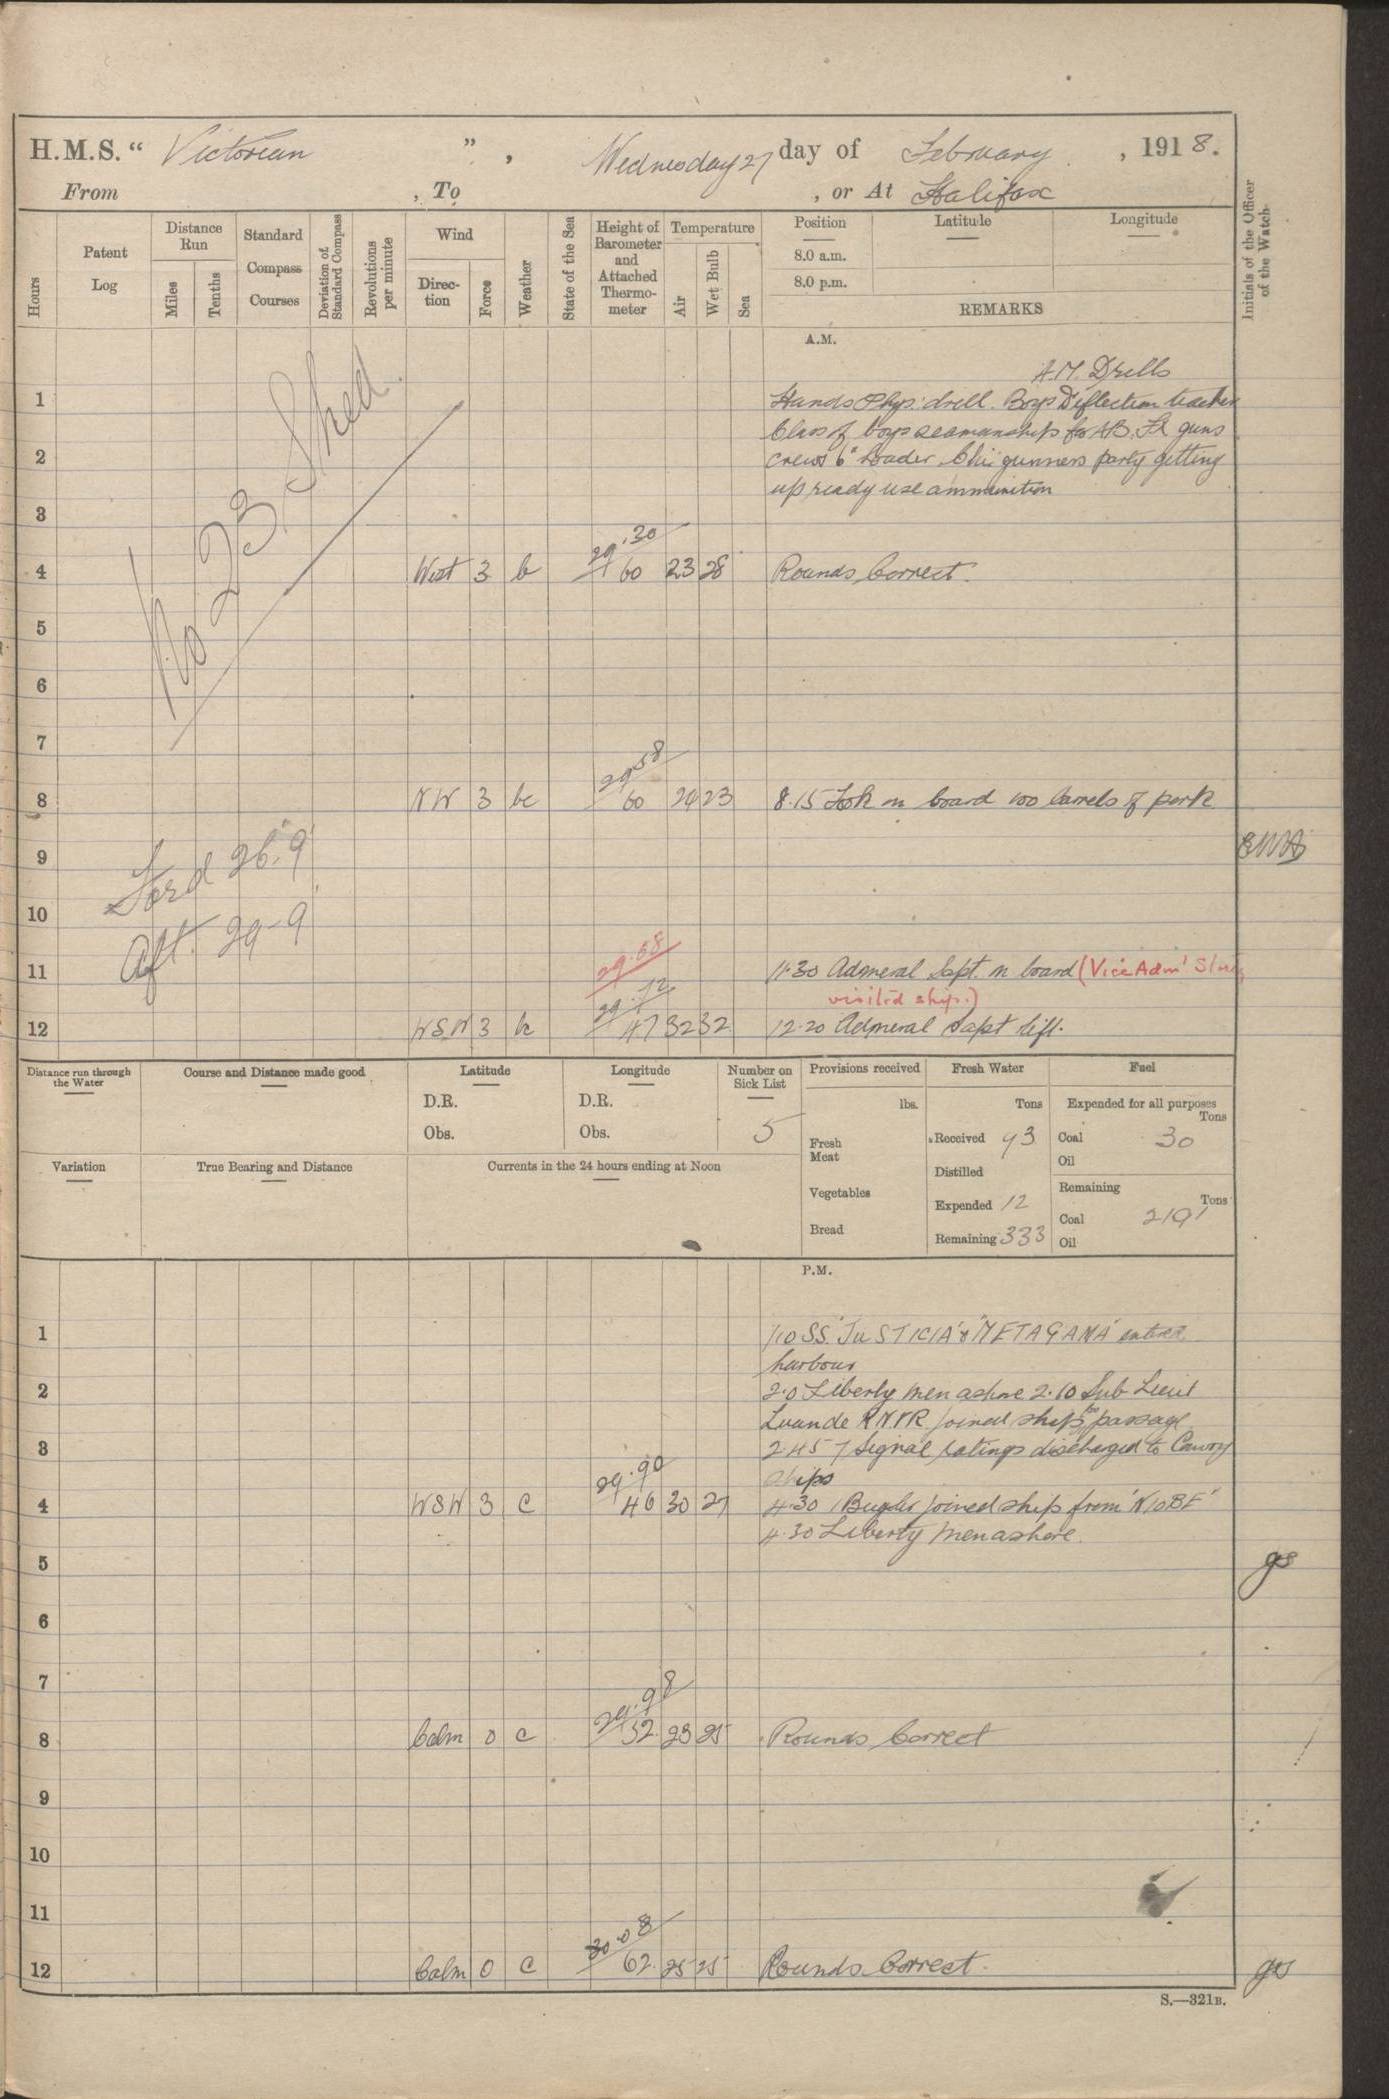 H.M.S. “ Victorian ” , Wednesday 27 day of February , 1918.
From , To , or At Halifax
Hours
Patent Log
Distance Run
Miles
Tenths
Standard Compass Courses
Deviation of Standard Compass
Revolutions per minute
Wind
Direction
Force
Weather
State of the Sea
Height of Barometer and Attached Thermometer
Temperature
Air
Wet Bulb
Sea
Position
8.0 a.m.
8.0 p.m.
Latitude
Longitude
REMARKS
Initials of the Officer of the Watch
A.M.
A.M. Drills
1 Hands Phys: drill. Boys Deflection teacher
Class of boys seamanship for AB. guns
2 crews 6" Loader. gunners party getting
up ready use ammunition
3
No 23 Shed.
29.30
4 West 3 b 60 23 28 Rounds Correct.
5
6
7
29.58
8 NW 3 bc 60 24 23 8.15 Took on board 100 barrels of pork
9
Ford 26'.9"
10
Aft. 29-9
29.68
11 11.30 Admiral Supt. on board (Vice Adml
visited ship.)
29.72
12 WSW 3 bc 47 32 32 12.20 Admiral Supt left.
Distance run through the Water
Course and Distance made good
Latitude
D.R.
Obs.
Longitude
D.R.
Obs.
Number on Sick List
5
Provisions received
lbs.
Fresh Meat
Vegetables
Bread
Fresh Water
Tons
Received 93
Distilled
Expended 12
Remaining 333
Fuel
Expended for all purposes
Tons
Coal 30
Oil
Remaining
Tons
Coal 2191
Oil
Variation
True Bearing and Distance
Currents in the 24 hours ending at Noon
P.M.
1 1.10 SS. "JUSTICIA" & "METAGAMA" entered
harbour
2 2.0 Liberty men ashore 2.10 Sub Lieut
RNVR joined ship for passage
3 2.45 7 Signal ratings discharged to Convoy
ships
29.90
4 WSW 3 c 46 30 27 4.30 1 Bugler joined ship from 'NIOBE'
4.30 Liberty men ashore.
5
6
7
29.98
8 Calm 0 c 52 23 25 Rounds Correct
9
10
11
30.08
12 Calm 0 c 62 25 25 Rounds Correct.
S.—321B.